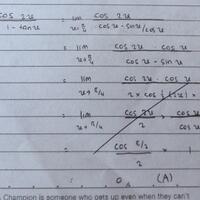 cos 2x / 1 - tan x = lim x→π/4 cos 2x / cos x - sin x / cos x
= lim x→π/4 cos 2x · cos x / cos x - sin x
= lim x→π/4 cos 2x · cos x
= lim x→π/4 cos 2x / 2 × cos
= cos π/2 / 2 × 1
= 0 (A)
Champion is someone who gets up even when they can't